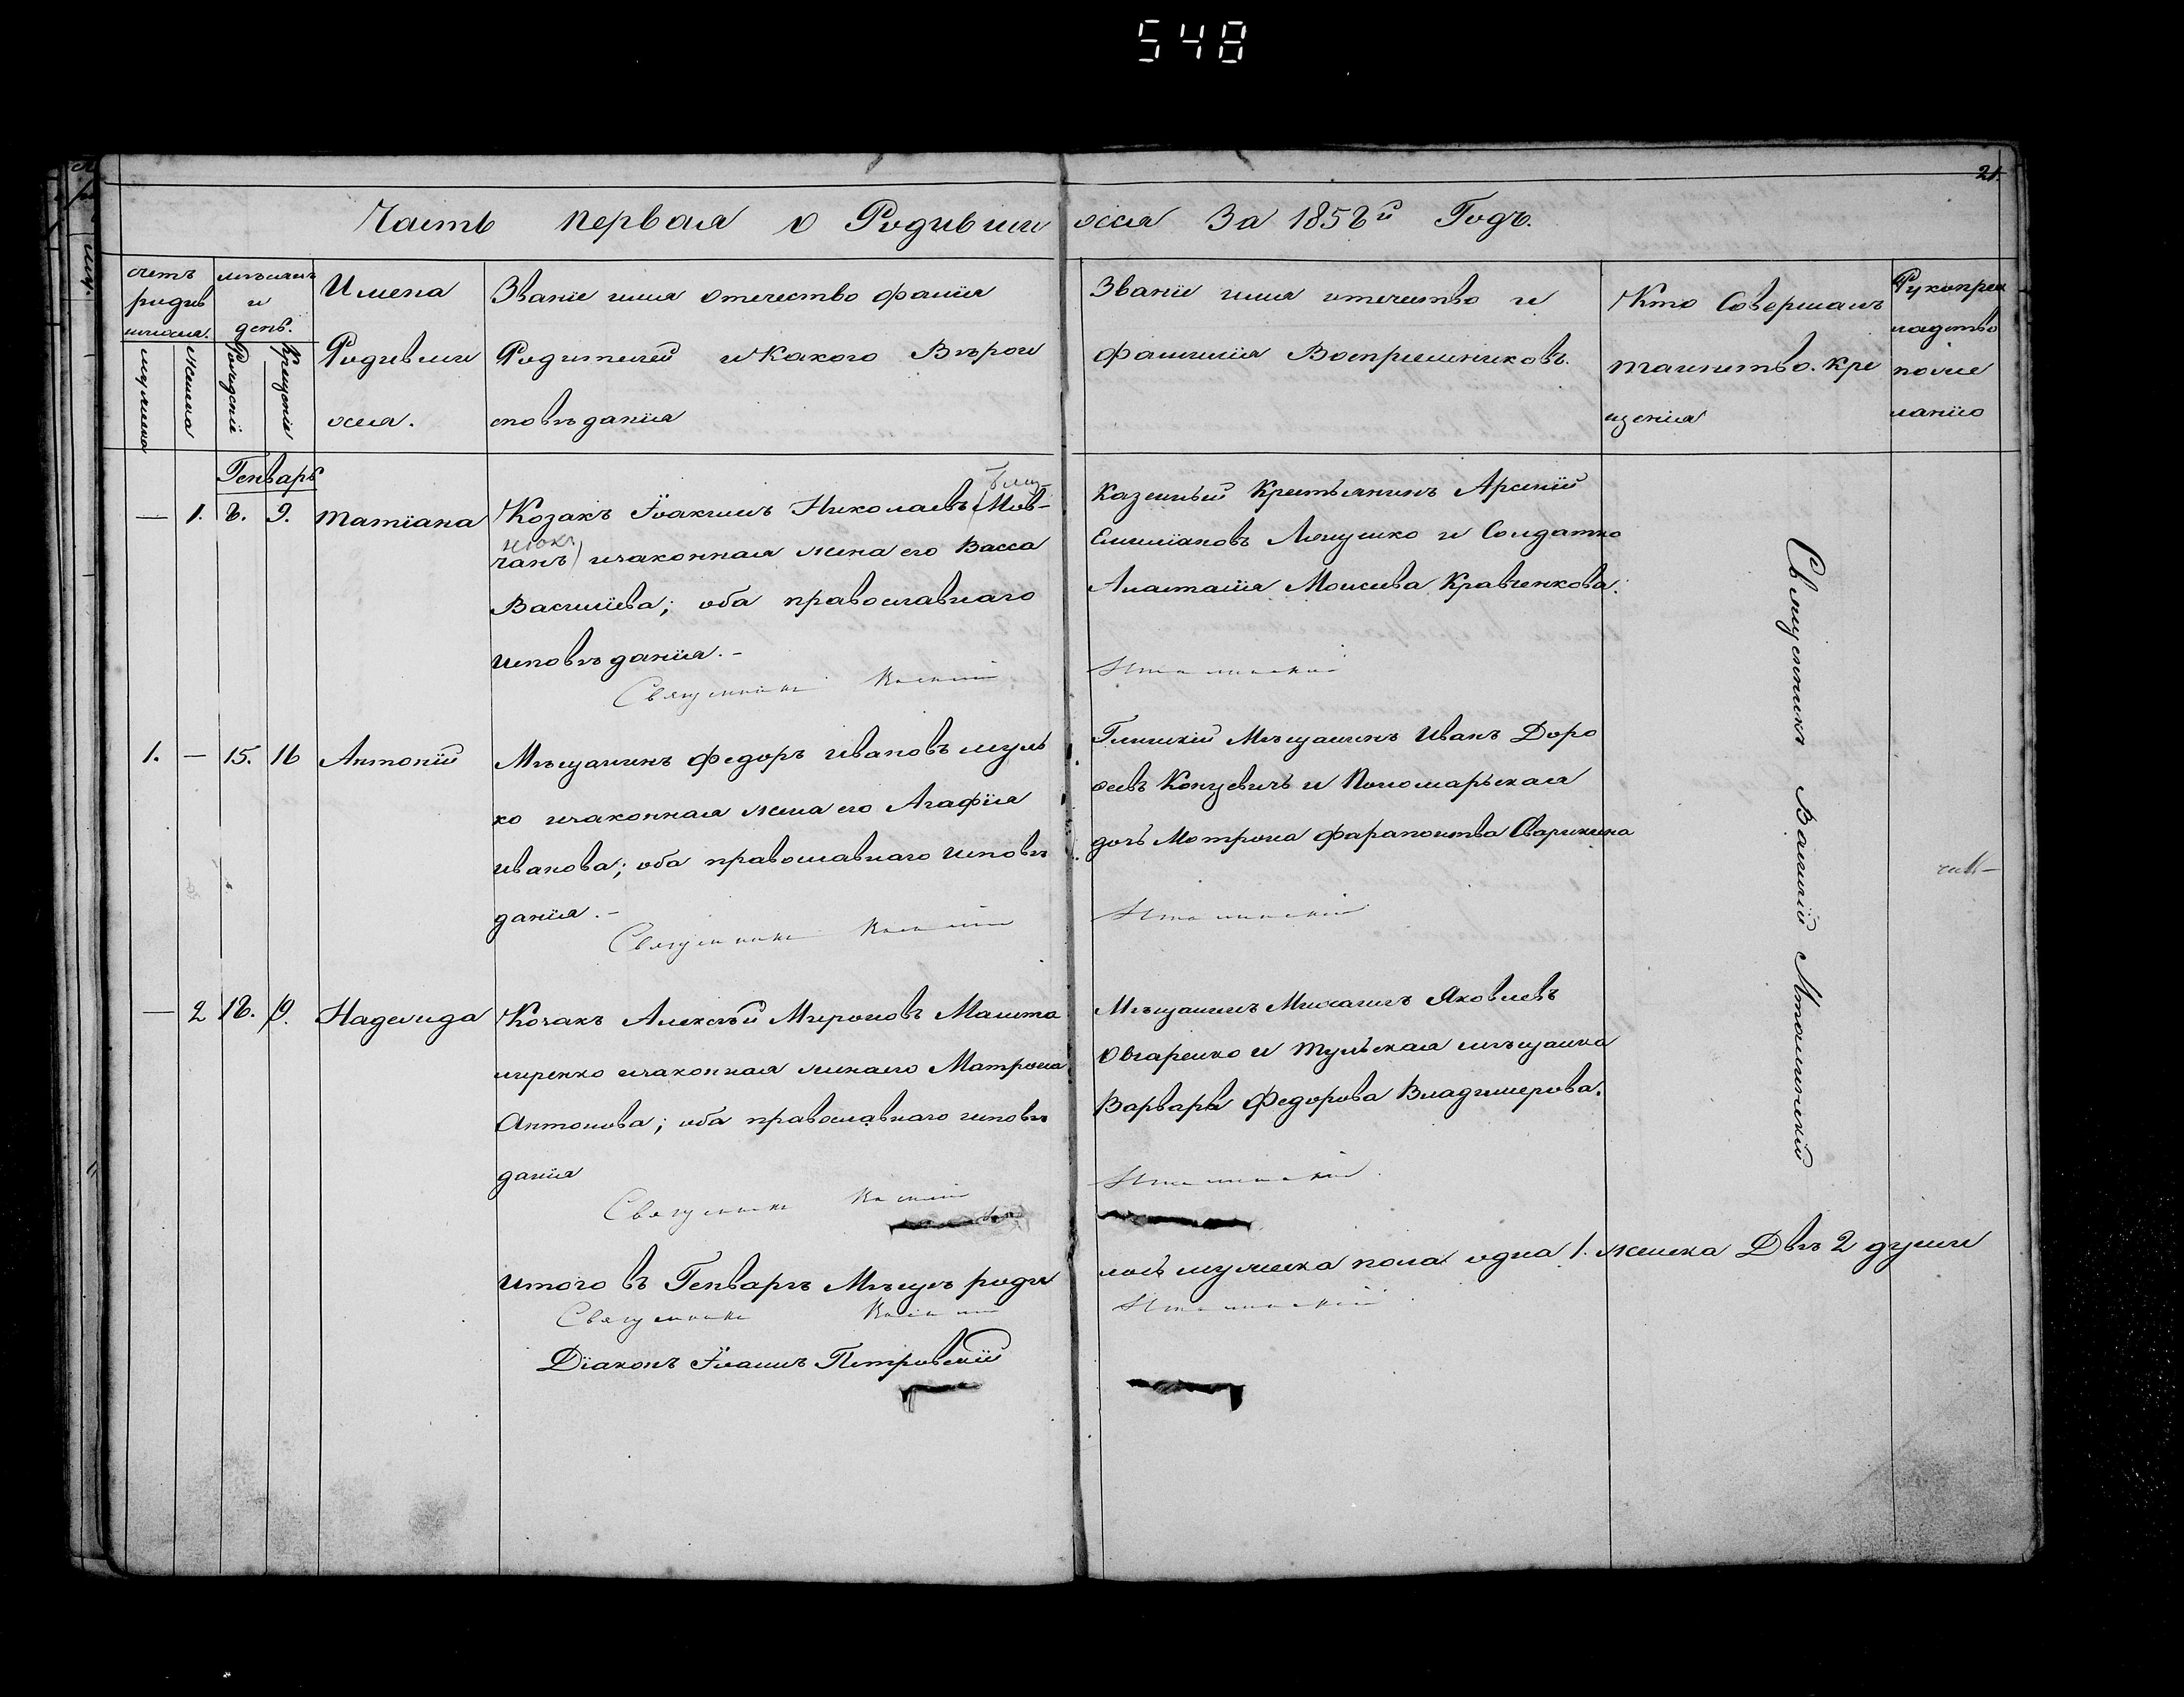 548
21.
Часть первая о Родивши
хся За 1858й Годъ.
счетъ
родив
шихся.
мужеска
женска
мѣсяцъ
и
день.
Рожденія
Крещенія
Имена
Родивши
хся.
Званіе имя отечество фамилія
Родителей и Какого Вѣрои
сповѣданія
Званіе имя отечество и
фамилія Воспріемниковъ.
Кто Совершалъ
таинство. Кре
щенія
Рукопри
кладство
по же
ланію
Генварь
— 1. 8. 9. Татіана
Козакъ Іоакимъ Николаевъ (Мов-
чанъ) изаконная жена его Васса
Василіева; оба православнаго
исповѣданія.-
Священникъ Василій
Казенный Крестьянинъ Арсеній
Емиліановъ и Солдатка
Анастасія Моисѣева Кравченкова.
Ятоминскій
1. — 15. 16 Антоній
Мѣщанинъ Федоръ Ивановъ Шуль
ко изаконная жена его Агафія
Иванова; оба православнаго исповѣ
данія.-
Священникъ Василій
Мѣщанинъ Иванъ Доро
ѳеевъ Концевичъ и Пономарьская
дочь Мотрона
— 2 18. 19. Надежда
Козакъ Алексѣй Мироновъ
изаконная женаего Матрона
Антонова; оба православнаго исповѣ
данія
Священникъ Василій
Мѣщанинъ Михаилъ Яковлевъ
Овчаренко и Тульская мѣщанка
Варвара Федорова Владимерова.
Священникъ Василій
итого въ Генварѣ Мѣсяцѣ роди
лось мужеска пола одна 1. женска Двѣ 2 души
Священникъ Василій
Діаконъ Іоаннъ Петровскій